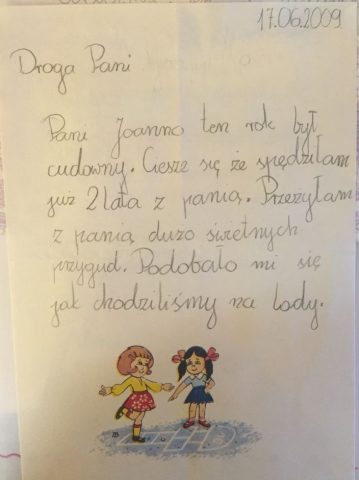 17.06.2009
Droga Pani
Pani Joanno ten rok był
cudowny. Ciesze się że spędziłam
już 2 lata z panią. Przeżyłam
z panią dużo świetnych
przygud. Podobało mi się
jak chodziliśmy na lody.